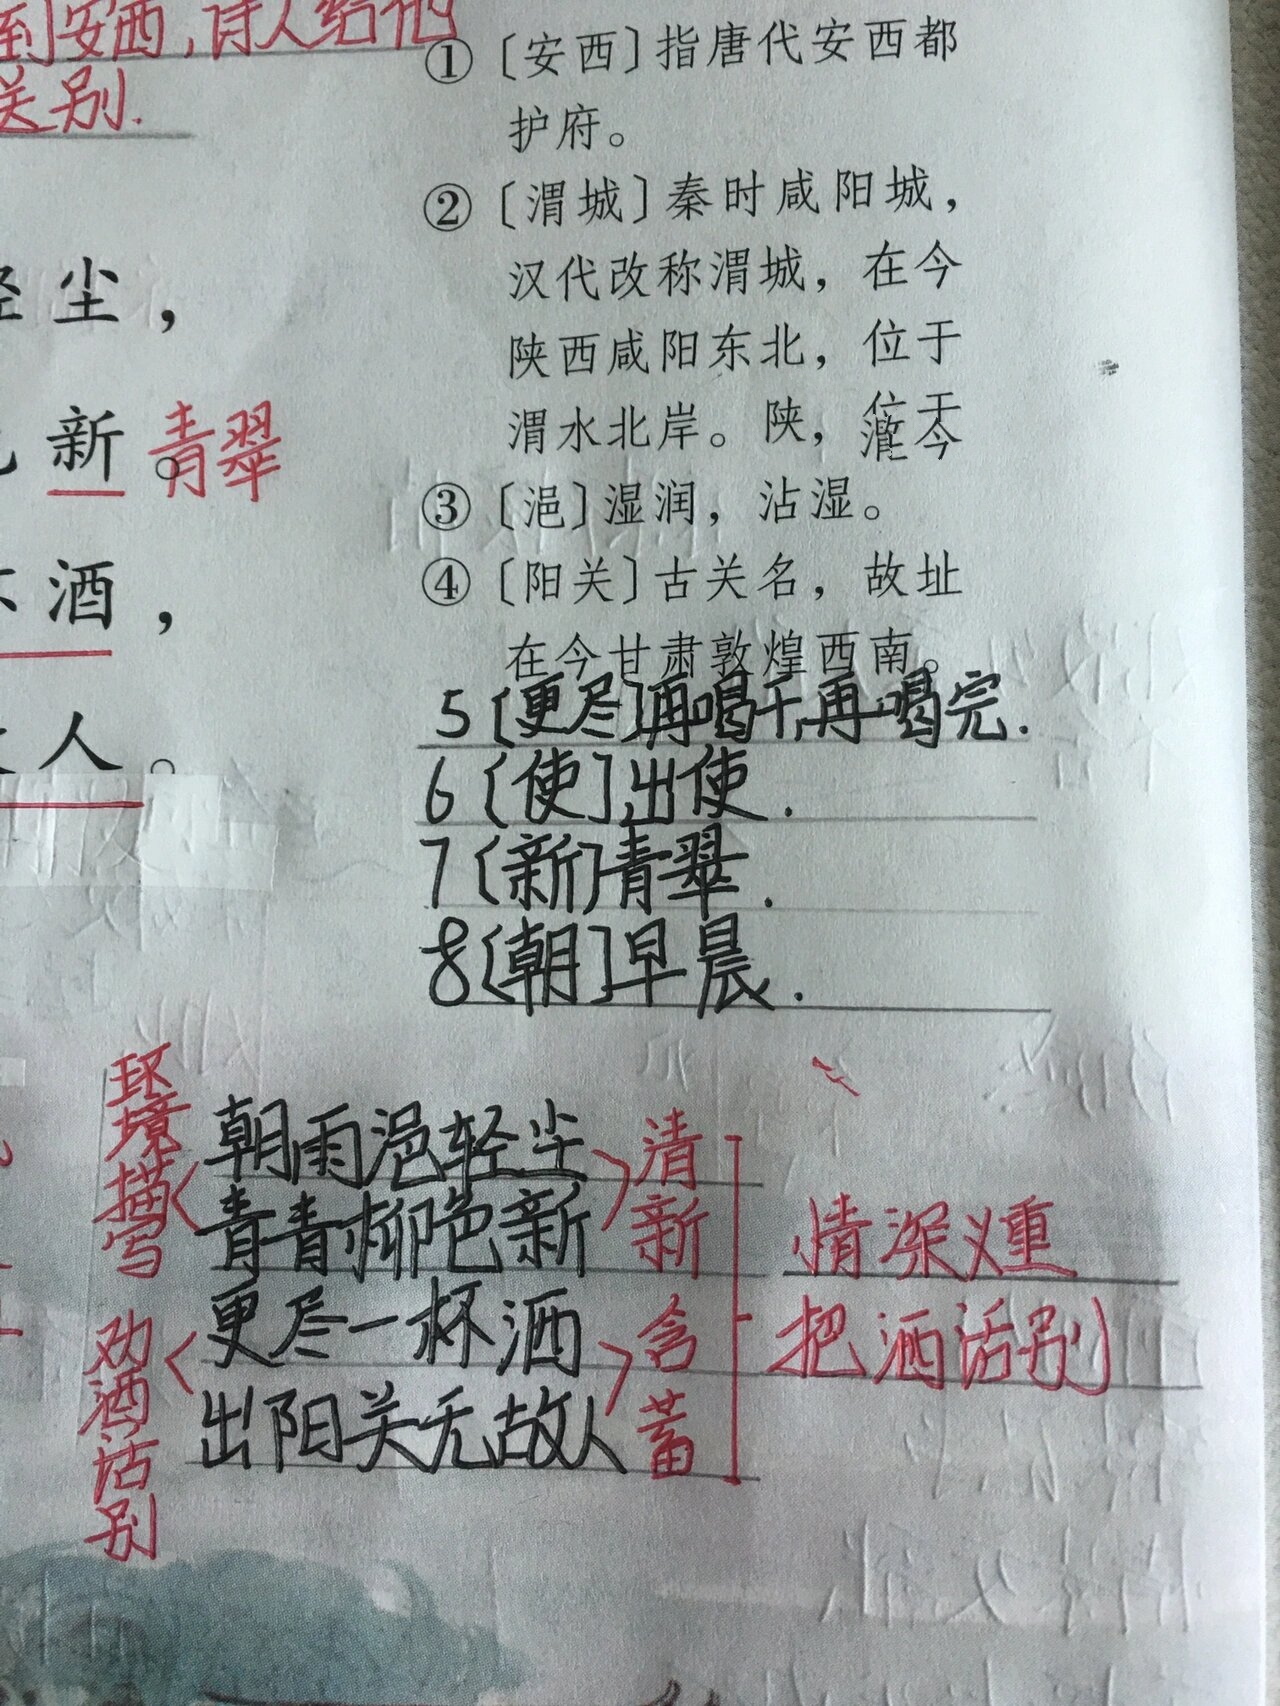 到安西，诗人给他
送别.
轻尘，
色新。青翠
杯酒，
故人。
①〔安西〕指唐代安西都
护府。
②〔渭城〕秦时咸阳城，
汉代改称渭城，在今
陕西咸阳东北，位于
渭水北岸。陕，
③〔浥〕湿润，沾湿。
④〔阳关〕古关名，故址
在今甘肃敦煌西南。
5〔更尽〕再喝干,再喝完.
6〔使〕出使.
7〔新〕青翠.
8〔朝〕早晨.
环境描写
朝雨浥轻尘
青青柳色新
清新
劝酒话别
更尽一杯洒
出阳关无故人
含蓄
情深义重
把洒话别